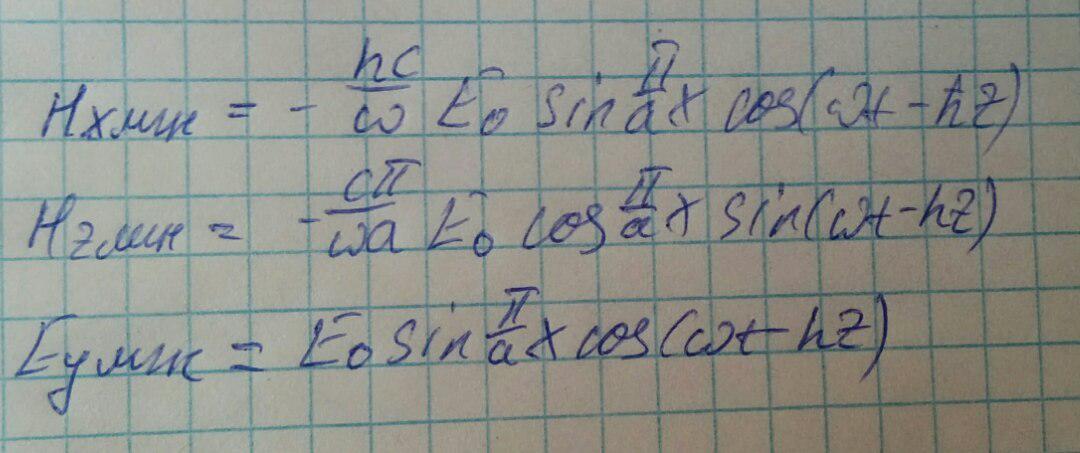 Hxмгн = - hc/ω E₀ sin π/a x cos(ωt - hz)
Hzмгн = - cπ/ωa E₀ cos π/a x sin(ωt - hz)
Eyмгн = E₀ sin π/a x cos(ωt - hz)